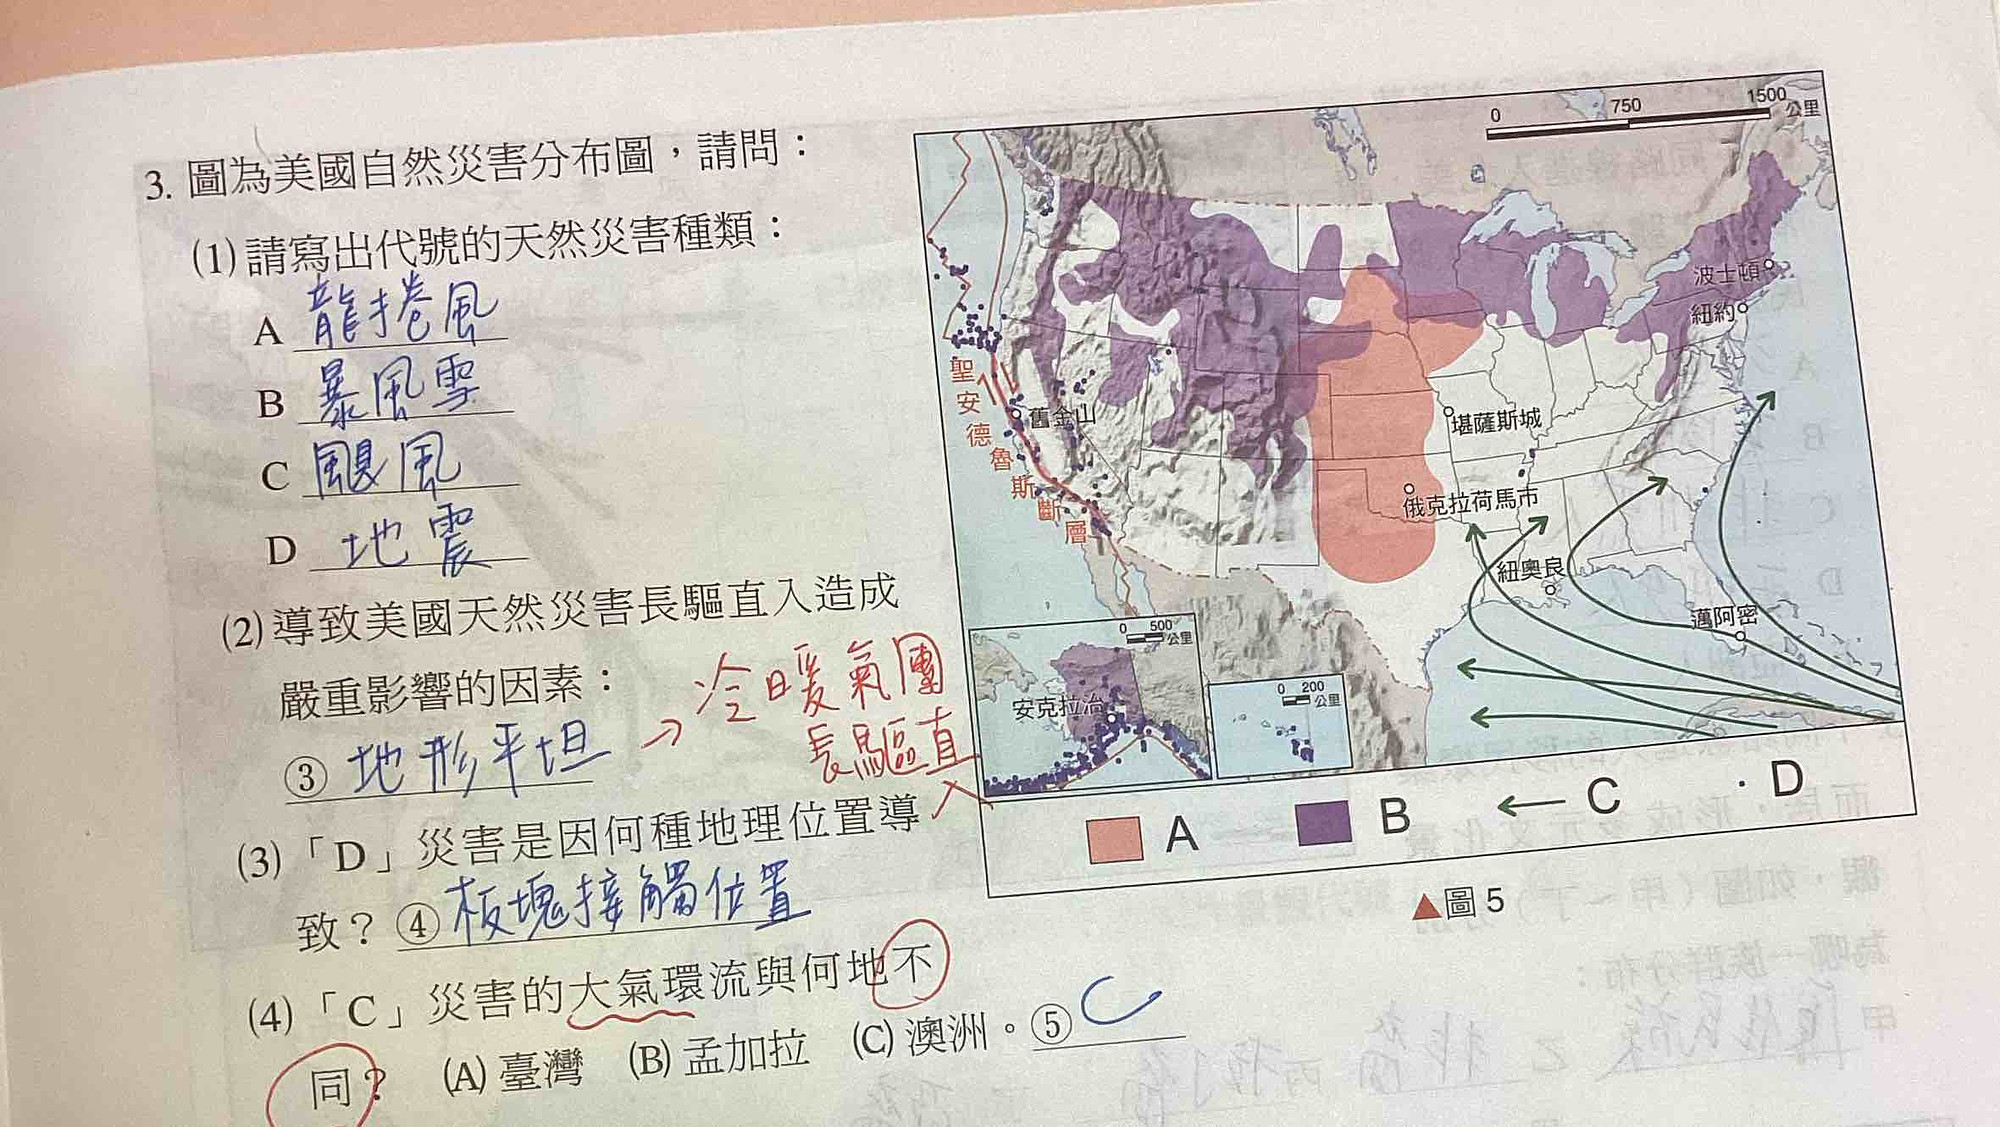 3. 圖為美國自然災害分布圖，請問：
(1)請寫出代號的天然災害種類：
A 龍捲風
B 暴風雪
C 颶風
D 地震
(2)導致美國天然災害長驅直入造成
嚴重影響的因素：
③ 地形平坦 → 冷暖氣團
長驅直
入
(3)「D」災害是因何種地理位置導
致？④ 板塊接觸位置
(4)「C」災害的大氣環流與何地不
同？ (A)臺灣 (B)孟加拉 (C)澳洲。⑤ C
0 750 1500 公里
波士頓
紐約
聖安德魯斯斷層
舊金山
堪薩斯城
俄克拉荷馬市
紐奧良
邁阿密
0 500 公里
安克拉治
0 200 公里
A B C D
▲圖 5